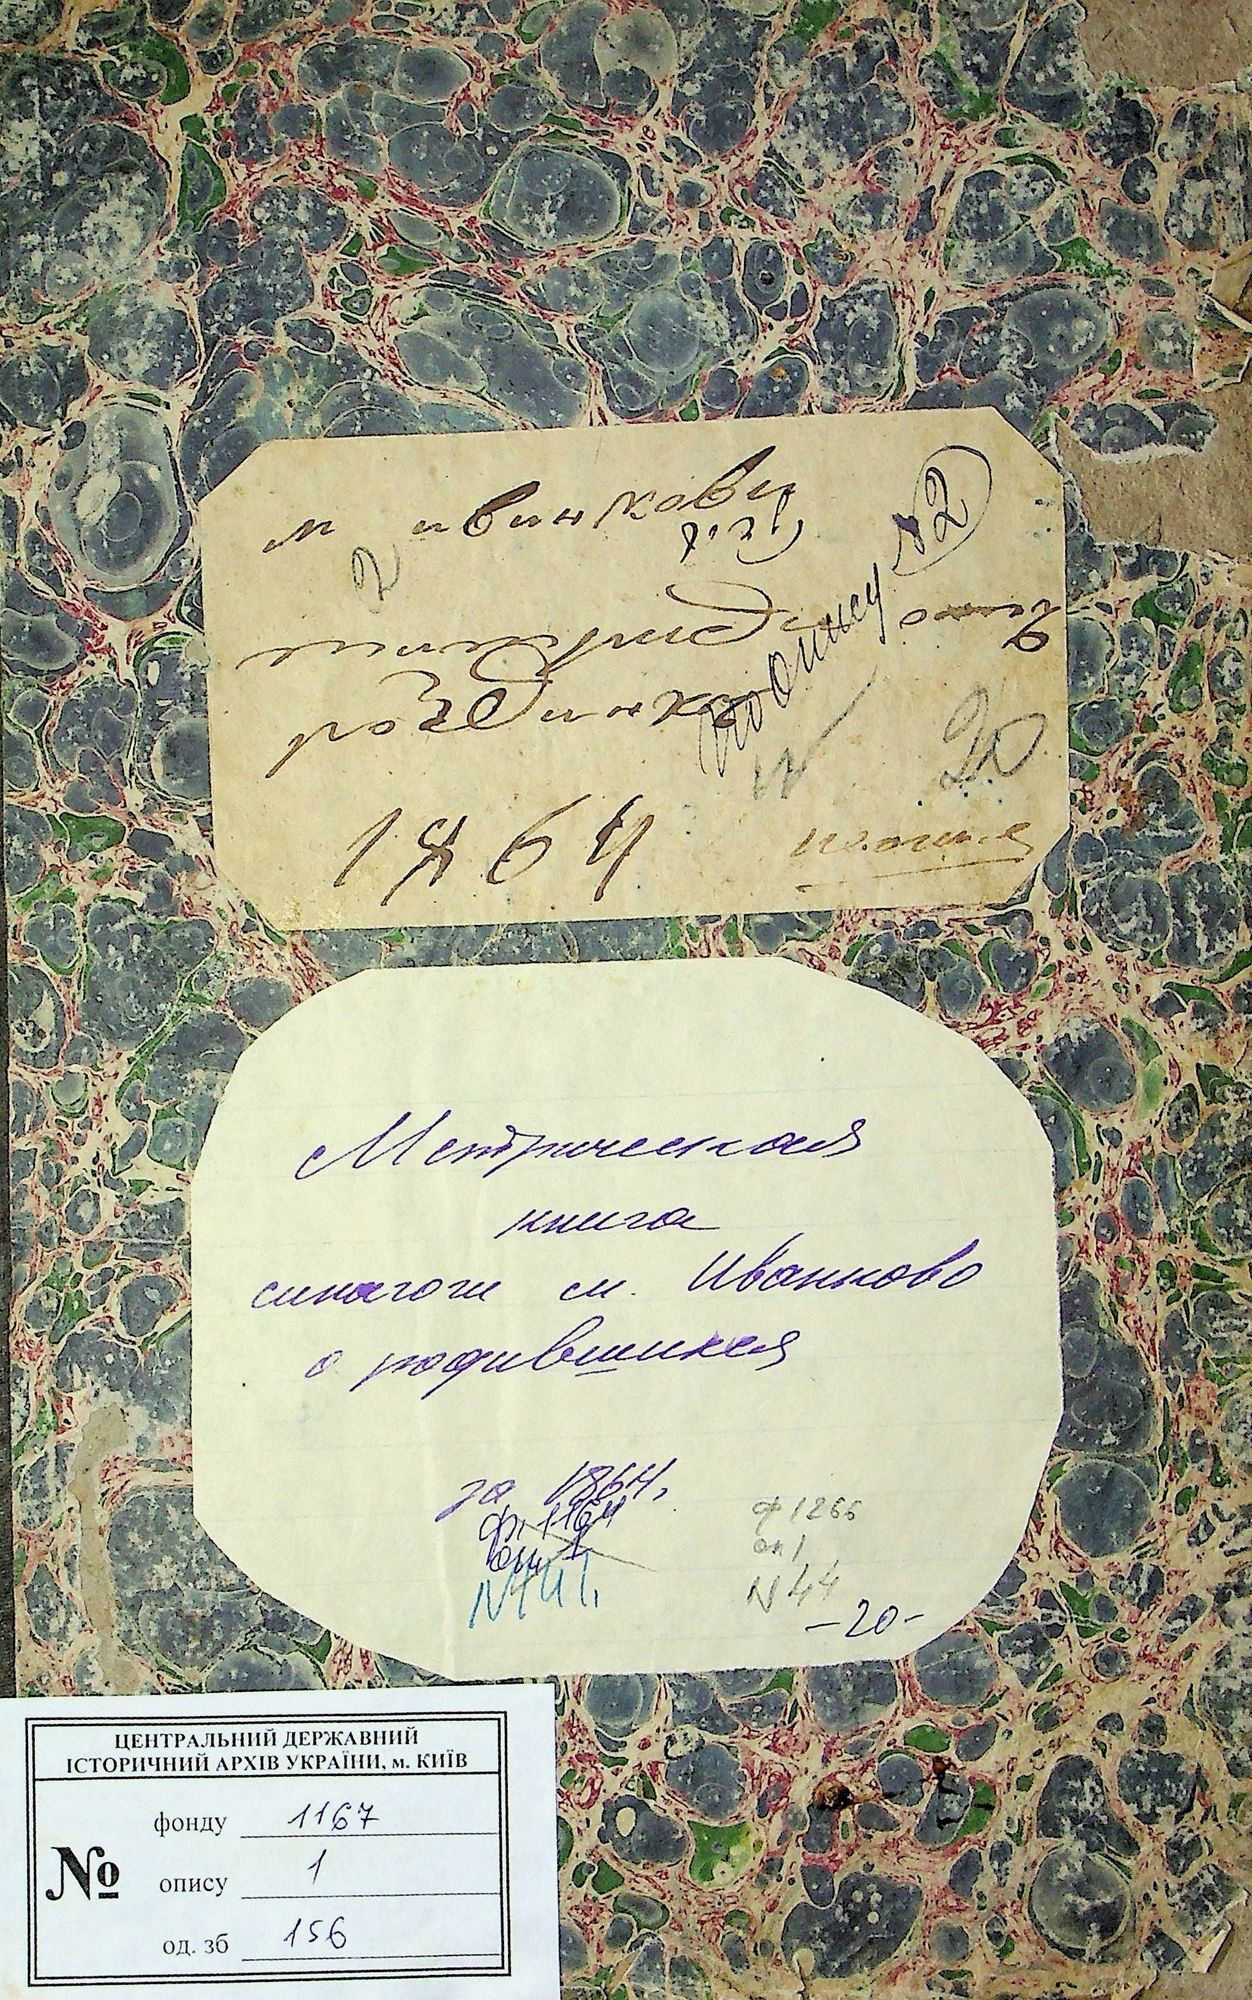 м иванкова
2
По опису №2
20
1864
Метрическая
книга
синагоги м. Иванково
о родившихся
за 1864.
ф. 1164
оп. 1
N 441.
ф 1266
оп 1
N 44
-20-
ЦЕНТРАЛЬНИЙ ДЕРЖАВНИЙ
ІСТОРИЧНИЙ АРХІВ УКРАЇНИ, м. КИЇВ
№
фонду 1167
опису 1
од. зб 156